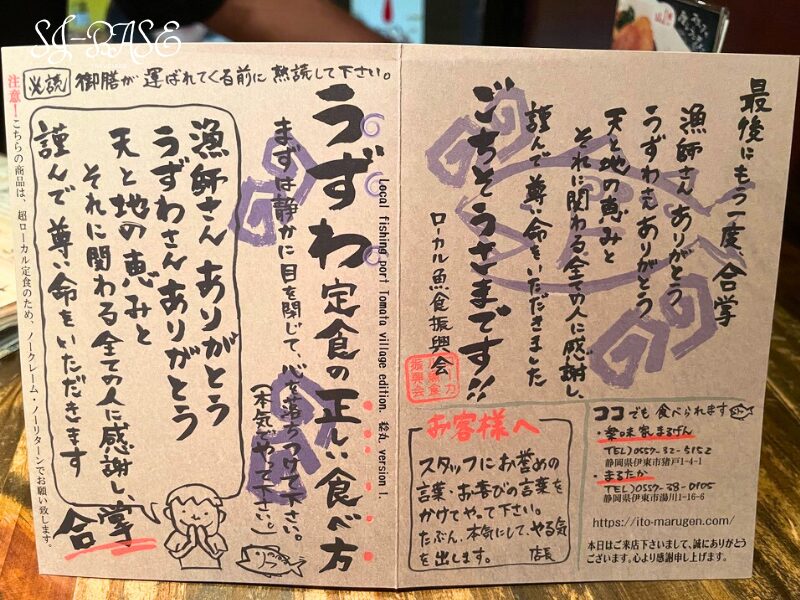 SJ-BASE
必読 御膳が運ばれてくる前に熟読して下さい。
うずわ定食の正しい食べ方
Local fishing port Tomata village edition. version 1.
まずは静かに目を閉じて、心を落ちつけて下さい。
(本気でやって下さい。)
漁師さんありがとう
うずわさんありがとう
天と地の恵みと
それに関わる全ての人に感謝し、
謹んで尊い命をいただきます
合掌
注意!こちらの商品は、超ローカル定食のため、ノークレーム・ノーリターンでお願い致します。
最後にもう一度、合掌
漁師さんありがとう
うずわさんありがとう
天と地の恵みと
それに関わる全ての人に感謝し、
謹んで尊い命をいただきました
ごちそうさまです!!
ローカル魚食振興会
お客様へ
スタッフにお誉めの
言葉・お喜びの言葉を
かけてやって下さい。
たぶん、本気にして、やる気
を出します。 店長
ココでも食べられます
・楽味家まるげん
TEL)0557-32-5152
静岡県伊東市猪戸1-4-1
・まるたか
TEL)0557-38-0105
静岡県伊東市湯川1-16-6
https://ito-marugen.com/
本日はご来店下さいまして、誠にありがとう
ございます。心より感謝申し上げます。